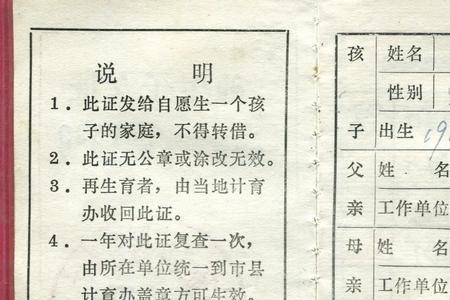 说 明
1．此证发给自愿生一个孩
子的家庭，不得转借。
2．此证无公章或涂改无效。
3．再生育者，由当地计育
办收回此证。
4．一年对此证复查一次，
由所在单位统一到市县
计育办盖章方可生效。
孩 姓名
性别
子 出生 19
父 姓 名
亲 工作单位
母 姓 名
亲 工作单位